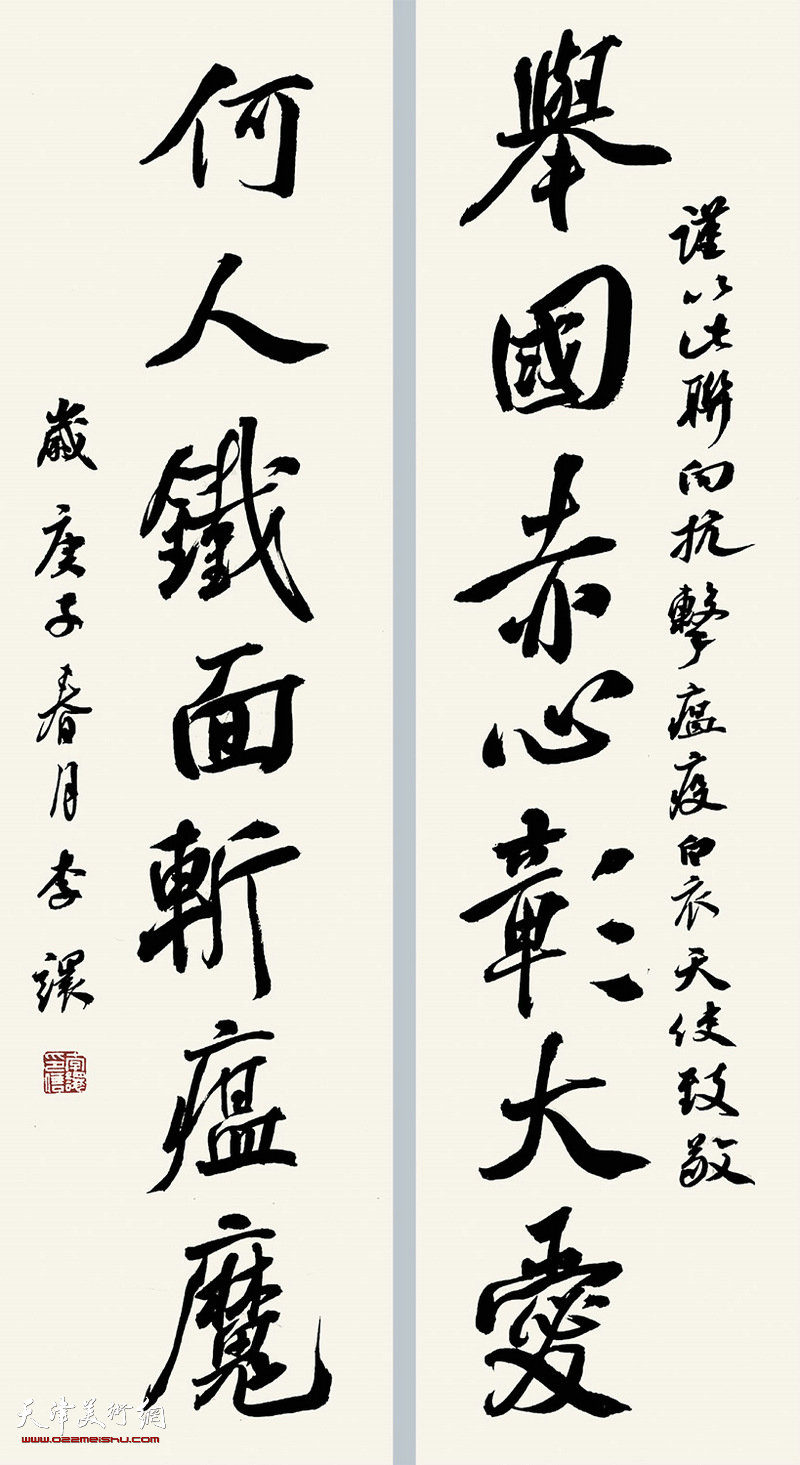 謹以此聯向抗擊瘟疫白衣天使致敬
舉國赤心彰大愛
何人鐵面斬瘟魔
歲庚子春月李譞
天津美術網
www.022meishu.com